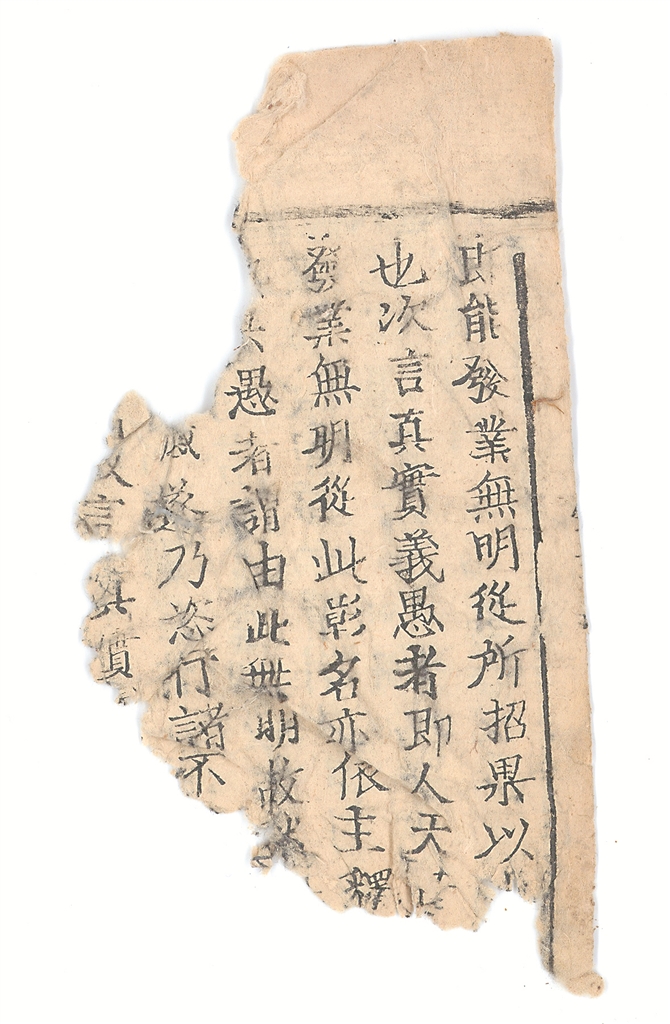 即能發業無明從所招果以
也次言真實義愚者即人天
發業無明從此彰名亦依主釋
愚者謂由此無明故迷
戚遂乃恣行諸不
故言真實